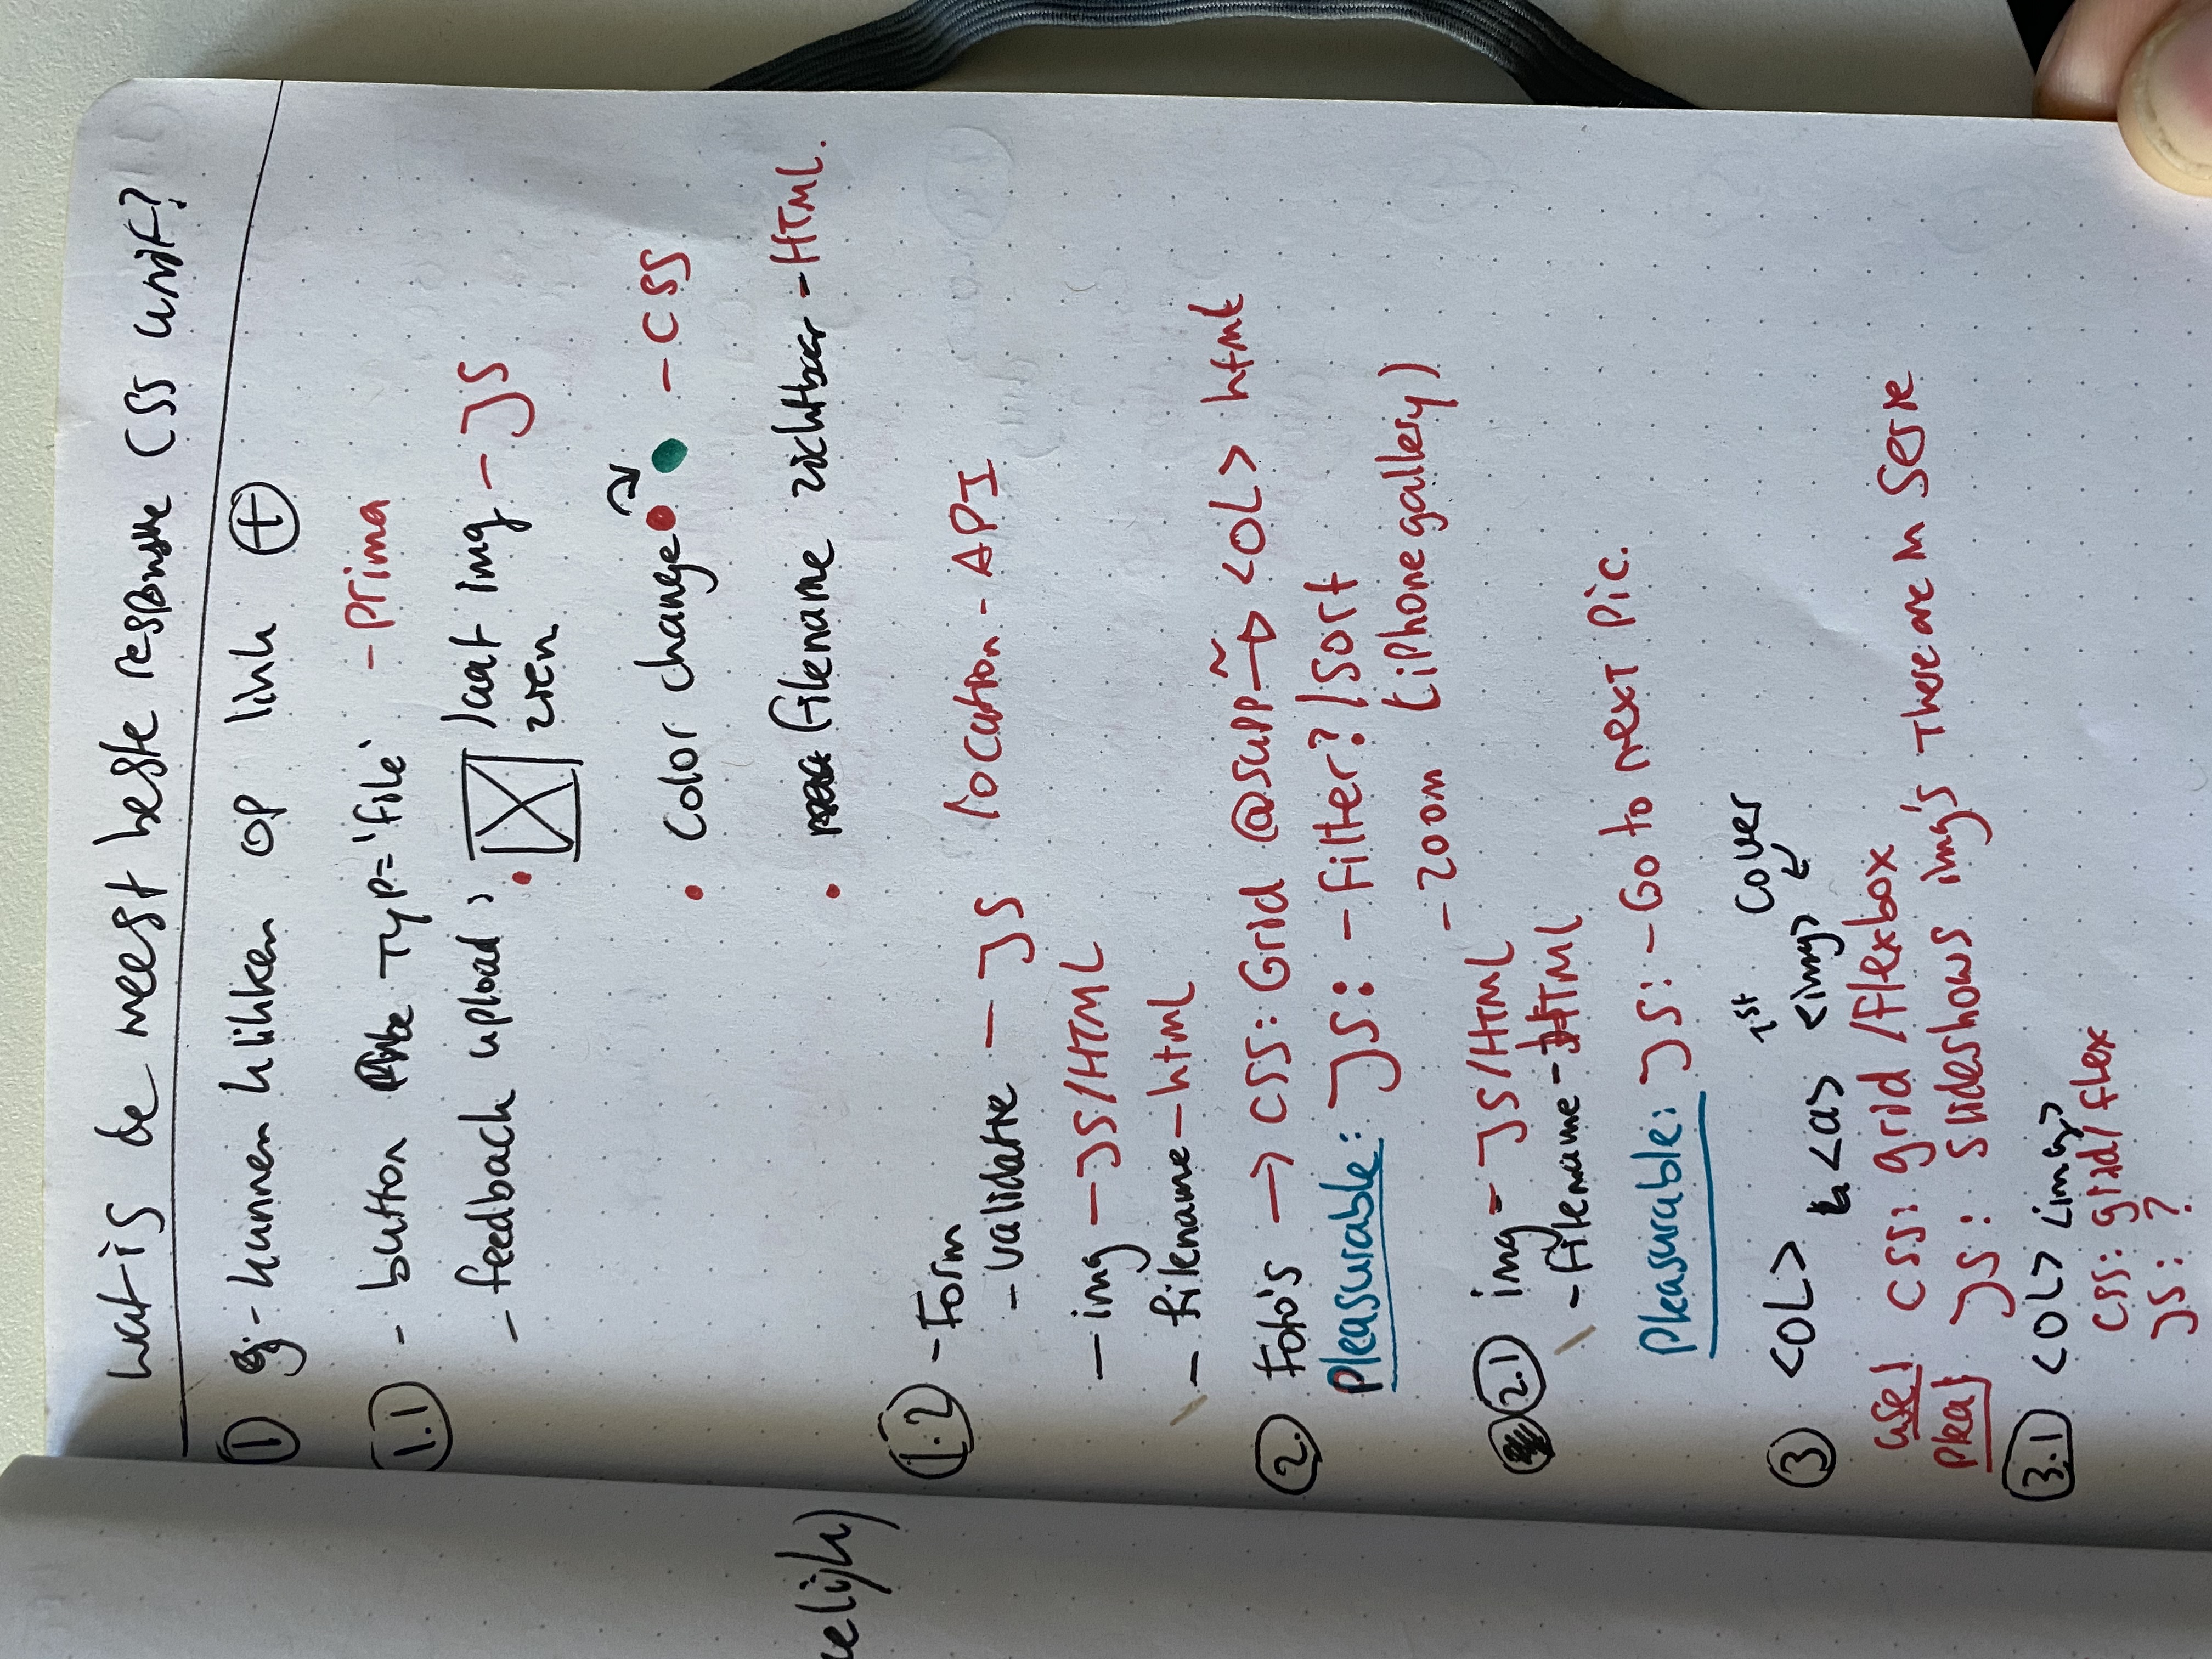 wat is de meest beste responsive CSS unit?
1 - kunnen klikken op link +
1.1 - button Typ='file' - Prima
- feedback upload: laat img - JS
zien
• Color change - CSS
• filename zichtbaar - HTML.
elijk)
1.2 - Form
- validatie - JS location - API
- img - JS/HTML
- filename - html
2. Foto's → CSS: Grid @supp ~→ <OL> html
Pleasurable: JS: - Filter? / Sort
- zoom (iPhone gallery)
2.1 img - JS/HTML
- filename - HTML
Pleasurable: JS: - Go to next Pic.
1st Cover
3 <OL> ↳ <a> <img> ↙
use | CSS: grid / Flexbox
Plea} JS: slideshows img's There are in Serie
3.1 <OL> <img>
CSS: grid / flex
JS: ?